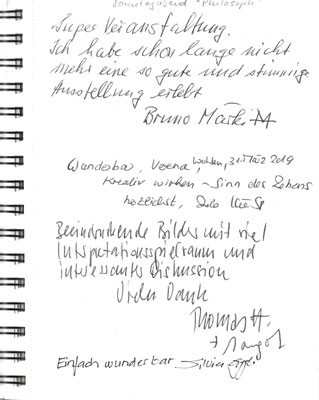 Sonntagabend "Philosoph
Super Veranstaltung.
Ich habe schon lange nicht
mehr eine so gute und stimmige
Ausstellung erlebt
Bruno
Wunderbar, Verena, Wohlen, 31. März 2019
Kreativ wirken – Sinn des Lebens
herzlichst,
Beeindruckende Bilder mit viel
Interpretationsspielraum und
interessante Diskussion
Vielen Dank
Thomas H.
+ Margot
Einfach wunderbar Silvia